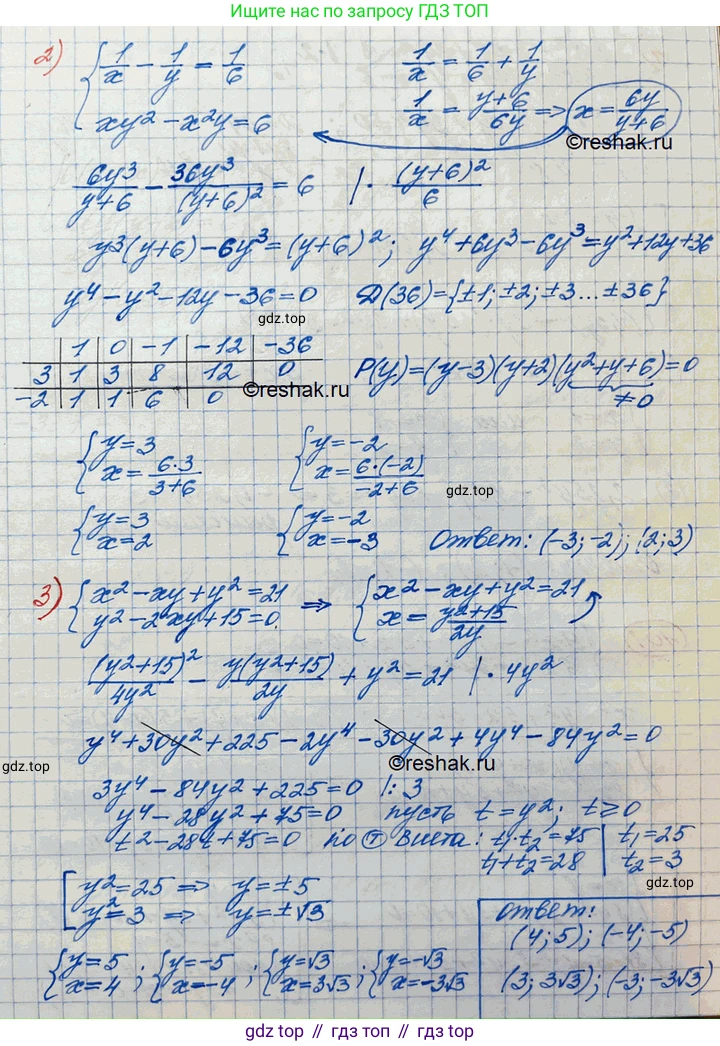 Ищите нас по запросу ГДЗ ТОП
2) { 1/x - 1/y = 1/6
xy² - x²y = 6
1/x = 1/6 + 1/y
1/x = (y+6)/6y => x = 6y/(y+6)
©reshak.ru
6y³/(y+6) - 36y³/(y+6)² = 6 | · (y+6)²/6
y³(y+6) - 6y³ = (y+6)²; y⁴+6y³-6y³=y²+12y+36
y⁴ - y² - 12y - 36 = 0 D(36)={±1; ±2; ±3...±36}
gdz.top
1 0 -1 -12 -36
3 1 3 8 12 0
-2 1 1 6 0
©reshak.ru
P(y)=(y-3)(y+2)(y²+y+6)=0
≠0
{ y=3
x = 6·3/(3+6)
{ y=-2
x = 6·(-2)/(-2+6)
gdz.top
{ y=3
x=2
{ y=-2
x=-3
Ответ: (-3;-2); (2;3)
3) { x² - xy + y² = 21
y² - 2xy + 15 = 0
=> { x² - xy + y² = 21
x = (y²+15)/2y
(y²+15)²/4y² - y(y²+15)/2y + y² = 21 | · 4y²
y⁴ + 30y² + 225 - 2y⁴ - 30y² + 4y⁴ - 84y² = 0
gdz.top
©reshak.ru
3y⁴ - 84y² + 225 = 0 |: 3
y⁴ - 28y² + 75 = 0 пусть t = y²; t ≥ 0
t² - 28t + 75 = 0 по т Виета: t₁·t₂ = 75 | t₁ = 25
t₁+t₂ = 28 | t₂ = 3
gdz.top
[ y² = 25 => y = ±5
y² = 3 => y = ±√3
{ y=5
x=4 ;
{ y=-5
x=-4 ;
{ y=√3
x=3√3 ;
{ y=-√3
x=-3√3
Ответ:
(4;5); (-4;-5)
(3; 3√3); (-3; -3√3)
gdz.top // гдз.топ // gdz.top